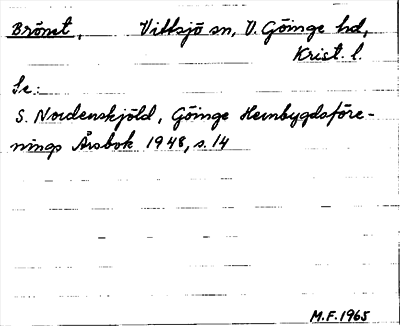 Brönet, Vittsjö sn, V. Göinge hd,
Krist. l.
Se:
S. Nordenskjöld, Göinge Hembygdsföre-
nings Årsbok 1948, s. 14
M.F. 1965